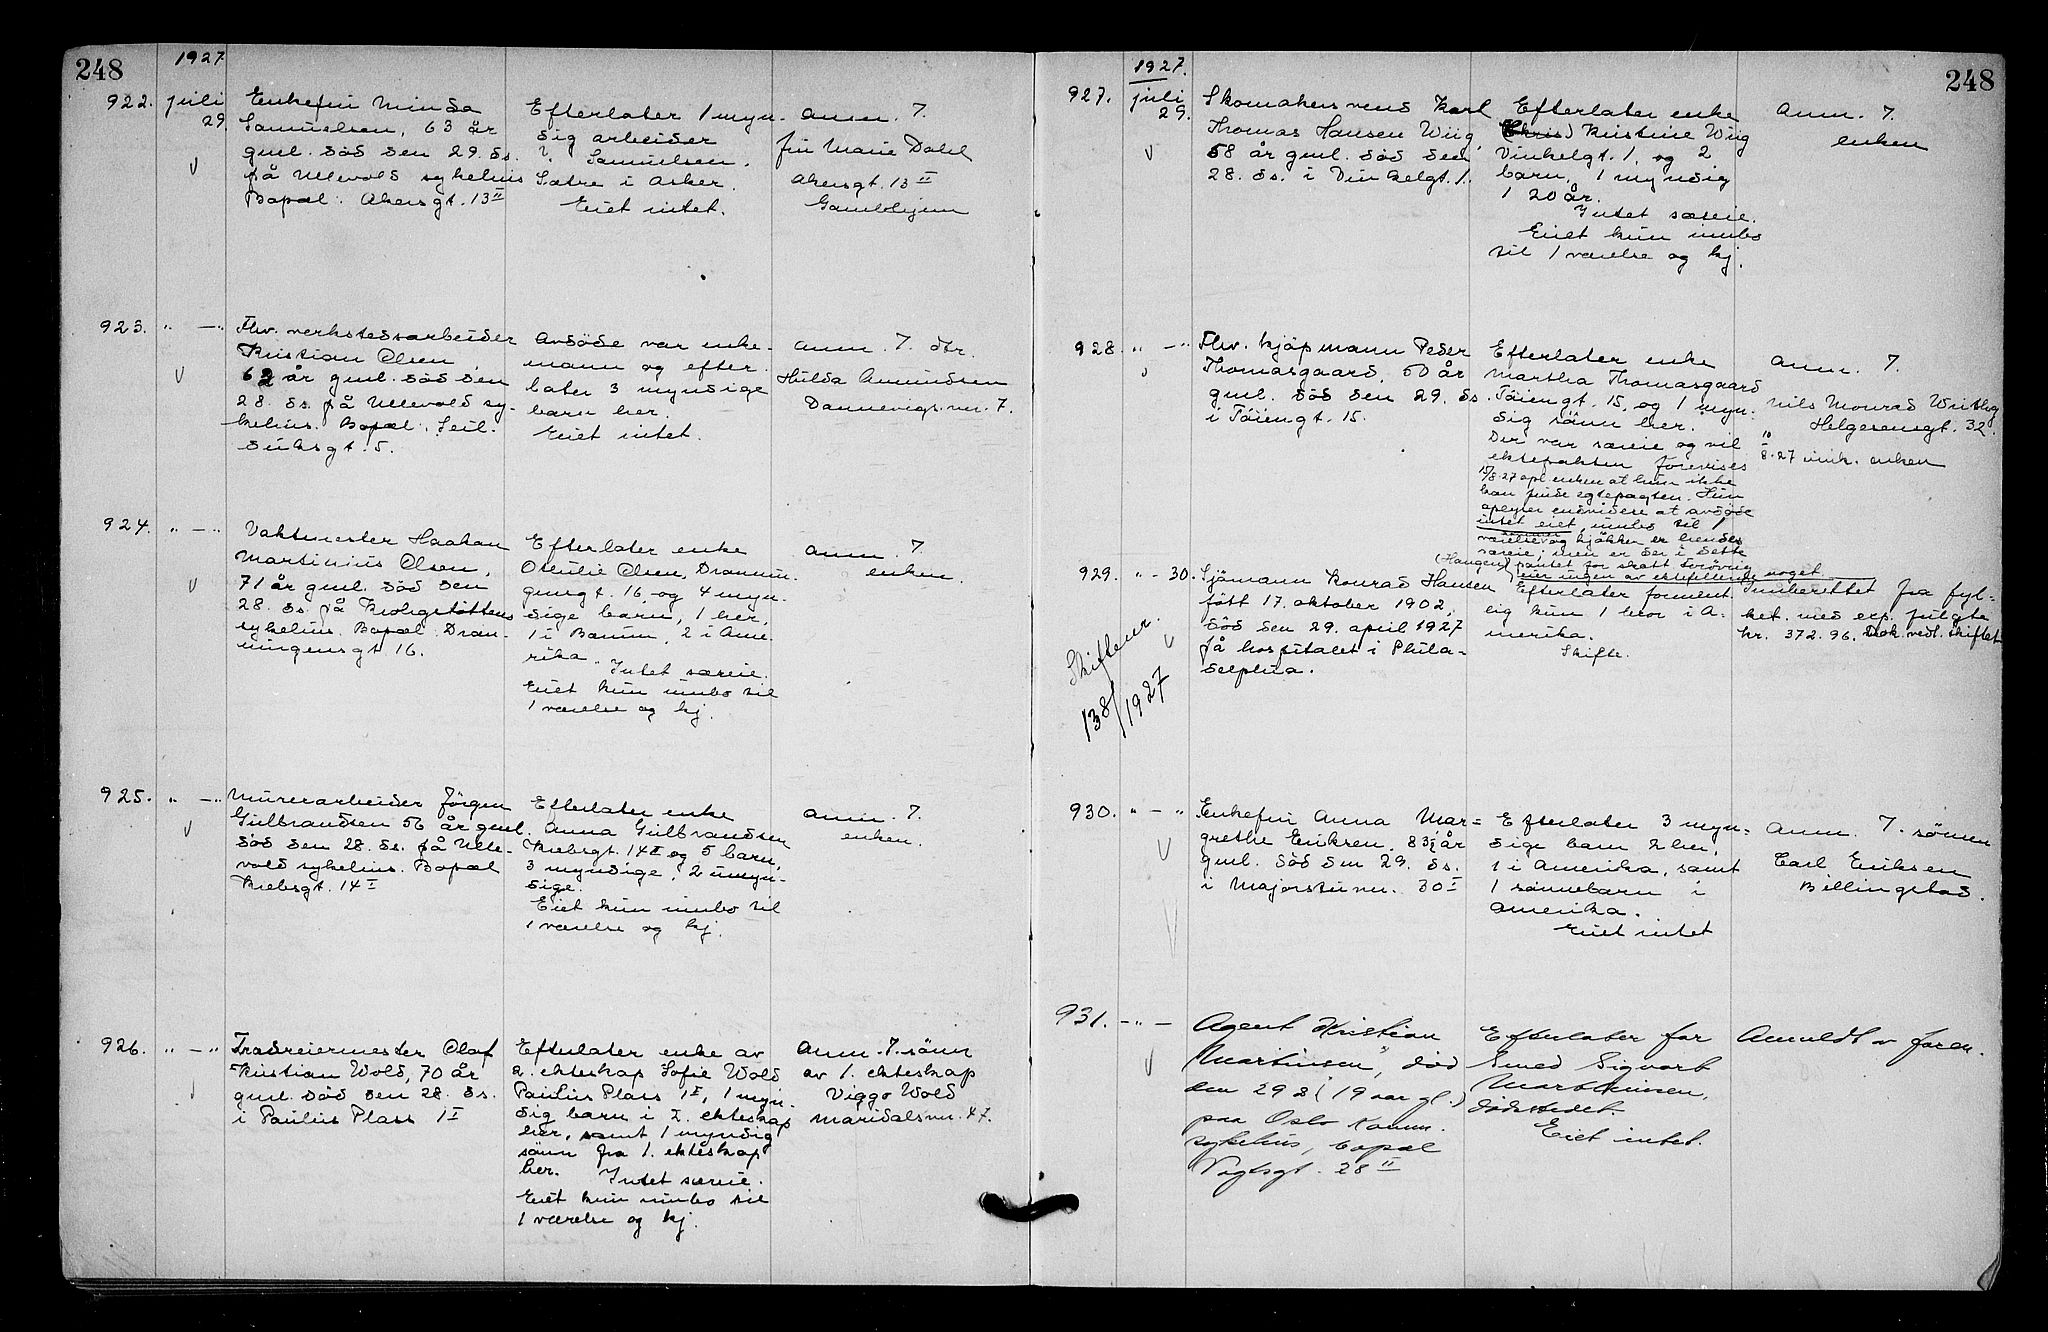 248
1927
922. juli 29.
Enkefru Minda
Samuelsen, 63 år
gml. død den 29. ds.
på Ullevold sykehus
Bopæl: Akersgt. 13 II
Efterlater 1 myn-
dig arbeider
?. Samuelsen.
Sætre i Asker.
Eiet intet.
Anm. 7.
fru Marie Dahl
Akersgt. 13 II
Gamlehjem
923. " — "
Fhv. verkstedsarbeider
Kristian Olsen
62 år gml. død den
28. ds. på Ullevold sy-
kehus. Bopæl: Seil-
duksgt. 5.
Avdøde var enke-
mann og efter-
later 3 myndige
barn her.
Eiet intet.
Anm. 7. dtr.
Hulda Amundsen
Dannevigsvn. 7.
924. " — "
Vaktmester Haakon
Martinius Olsen,
71 år gml. død den
28. ds. på Krohgstøttens
sykehus. Bopæl: Dron-
ningensgt 16.
Efterlater enke
Othilie Olsen, Dronnin-
gensgt. 16 og 4 myn-
dige barn, 1 her,
1 i Bærum, 2 i Ame-
rika. Intet særeie.
Eiet kun innbo til
1 værelse og kj.
Anm. 7.
enken.
925. " — "
Murerarbeider Jörgen
Gulbrandsen 56 år gml.
död den 28. ds. på Ulle-
vold sykehus. Bopæl
Krebsgt. 14 I
Efterlater enke
Anna Gulbrandsen
Krebsgt. 14 I og 5 barn,
3 myndige, 2 umyn-
dige.
Eiet kun innbo til
1 værelse og kj.
Anm. 7.
enken.
926. " — "
Trædreiermester Olaf
Kristian Wold, 70 år
gml. död den 28. ds.
i Paulus Plass 1 I
Efterlater enke av
2. ekteskap Sofie Wold
Paulus Plass 1 I, 1 myn-
dig barn i 2. ekteskap
her, samt 1 myndig
sönn fra 1. ekteskap
her. Intet særeie.
Eiet kun innbo til
1 værelse og kj.
Anm. 7. sönn
av 1. ekteskap
Viggo Wold
Maridalsvn. 47.
248
1927.
927. juli 29.
Skomakersvend Karl
Thomas Hansen Wiig,
58 år gml. död den
28. ds. i Vinkelgt. 1.
Efterlater enke
Kristine Wiig
Vinkelgt. 1, og 2
barn, 1 myndig
1 20 år.
Intet særeie.
Eiet kun innbo
til 1 værelse og kj.
Anm. 7.
enken
928. " — "
Fhv. kjöpmann Peder
Thomasgaard, 50 år
gml. död den 29. ds
i Töiengt. 15.
Efterlater enke
Martha Thomasgaard
Töiengt. 15, og 1 myn-
dig sönn her.
Der var særeie og vil
ektepakten forevises
15/8.27 opl. enken at hun ikke
kan finde egtepagten. Hun
oplyser endvidere at avdöde
intet eiet, innbo til 1
værelse og kjökken er hendes
særeie, men er der i dette
pantet for skatt
eier ingen av ektefellene noget
Anm. 7.
Nils Monrad
Helgesensgt. 32.
10/8.27 innk. enken
929. " - 30.
Skiftenr.
138/1927
(Haugen)
Sjömann Konrad Hansen
født 17. oktober 1902,
död den 29. april 1927
på hospitalet i Phila-
delphia.
Efterlater forment-
lig kun 1 bror i A-
merika.
Skifte.
Innberettet fra fyl-
ket. med exp. fulgte
kr. 372.96. Dok. vedl. skiftet
930. " — "
Enkefru Anna Mar-
grethe Eriksen. 83½ år
gml. död den 29. ds.
i Majorstuvn. 30 I
Efterlater 3 myn-
dige barn 2 her,
1 i Amerika, samt
1 sönnebarn i
Amerika.
Eiet intet
Anm. 7. sönnen
Carl Eriksen
Billingstad.
931. — " —
Agent Kristian
Martinsen, död
den 29 ds (19 aar gl.)
paa Oslo Komm.
sykehus, bopæl
Vogtsgt. 28 II
Efterlater far
Smed Sigvart
Martinsen,
dødstedet.
Eiet intet.
Anmeldt av faren.